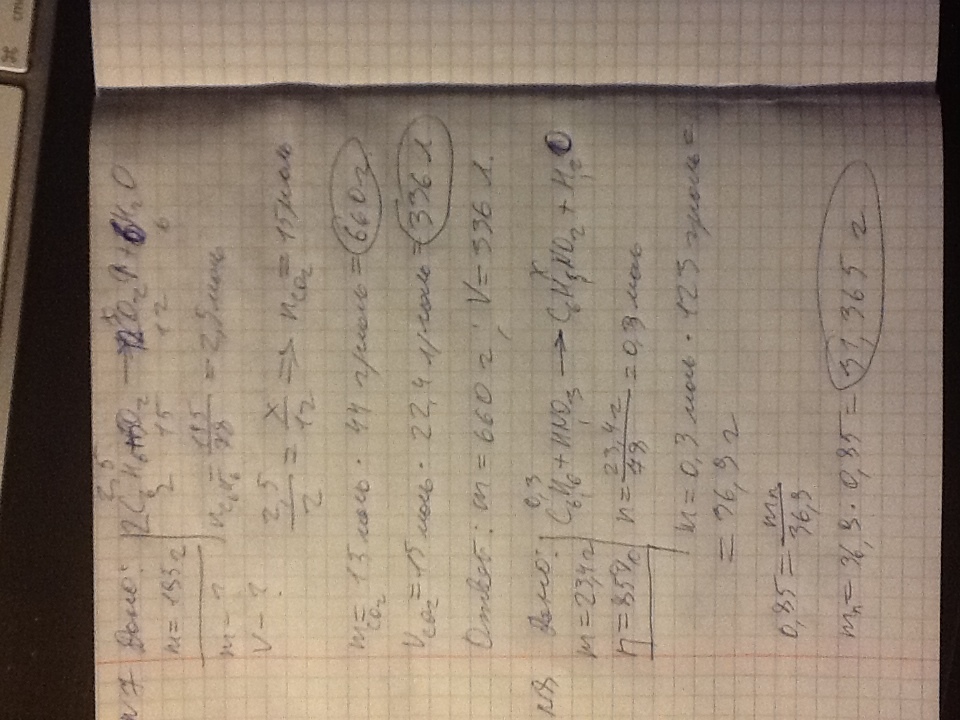 №7 Дано:
m = 195 г
m - ?
V - ?
2C6H6 + 15O2 → 12CO2↑ + 6H2O
2 15 12 6
nC6H6 = 195/78 = 2,5 моль
2,5/2 = x/12 => nCO2 = 15 моль
mCO2 = 15 моль · 44 г/моль = 660 г
VCO2 = 15 моль · 22,4 л/моль = 336 л
Ответ: m = 660 г; V = 336 л.
№8 Дано:
m = 23,4 г
η = 85%
0,3 x
C6H6 + HNO3 → C6H5NO2 + H2O
n = 23,4 г/78 = 0,3 моль
m = 0,3 моль · 123 г/моль =
= 36,9 г
0,85 = mп/36,9
mп = 36,9 · 0,85 = 31,365 г